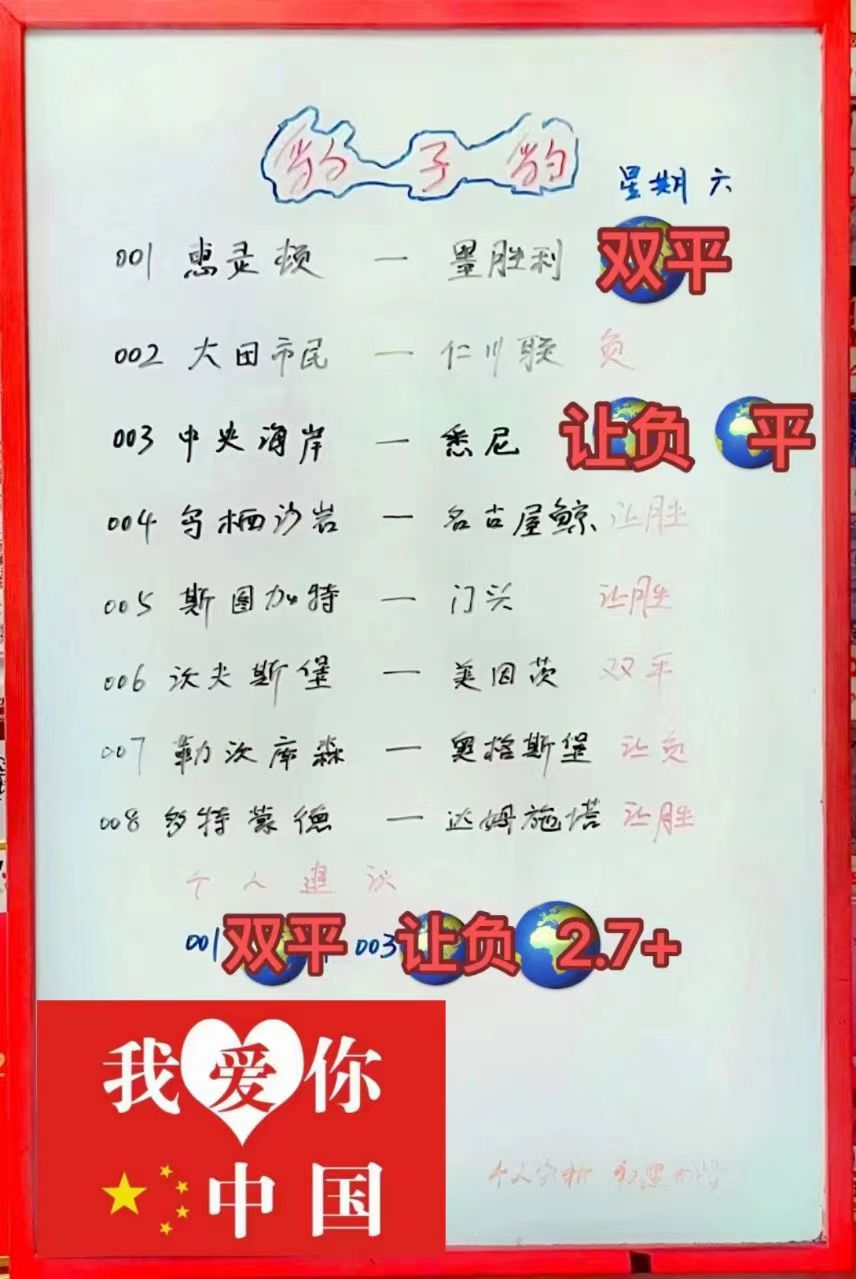 豹子豹
星期六
001 惠灵顿 — 墨胜利 双平
002 大田市民 — 仁川联 负
003 中央海岸 — 悉尼 让负 平
004 鸟栖沙岩 — 名古屋鲸 让胜
005 斯图加特 — 门兴 让胜
006 沃夫斯堡 — 美因茨 双平
007 勒沃库森 — 奥格斯堡 让负
008 多特蒙德 — 达姆施塔 让胜
个人建议
001 双平 003 让负 2.7+
我爱你
中国
个人